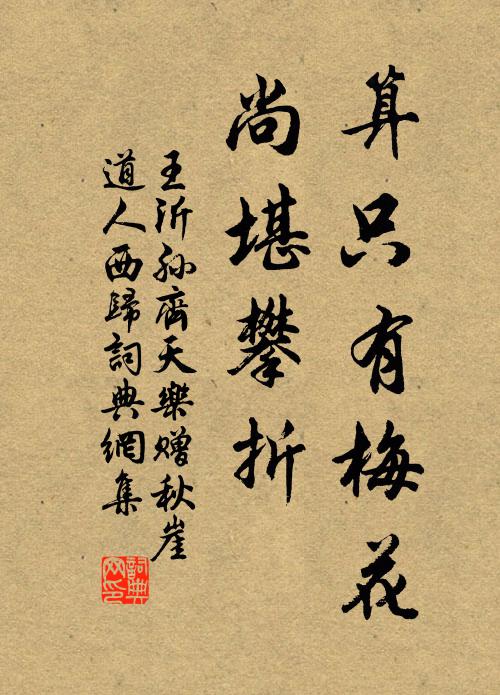 算只有梅花
尚堪攀折
王沂孙齊天樂贈秋崖
道人西歸詞典網集
詞典网印